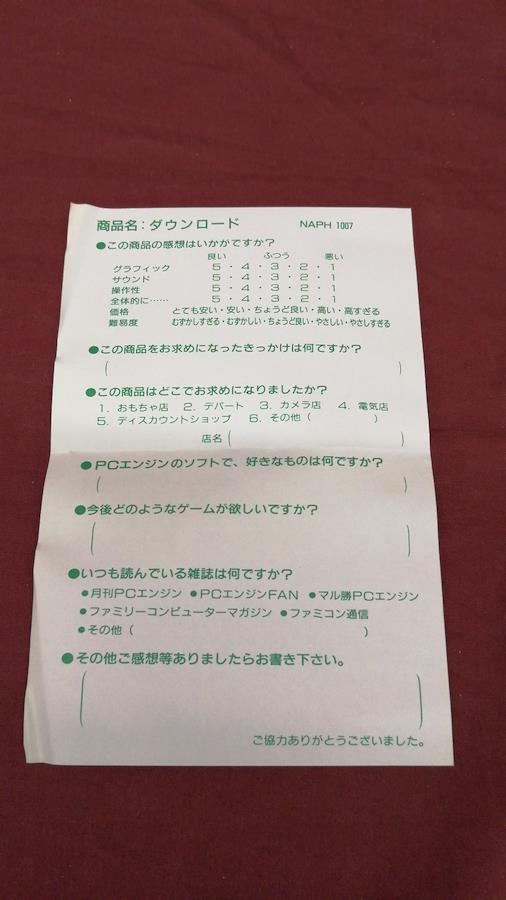 商品名：ダウンロード　NAPH 1007
●この商品の感想はいかがですか？
良い　ふつう　悪い
グラフィック　5・4・3・2・1
サウンド　5・4・3・2・1
操作性　5・4・3・2・1
全体的に……　5・4・3・2・1
価格　とても安い・安い・ちょうど良い・高い・高すぎる
難易度　むずかしすぎる・むずかしい・ちょうど良い・やさしい・やさしすぎる
●この商品をお求めになったきっかけは何ですか？
(　)
●この商品はどこでお求めになりましたか？
1. おもちゃ店　2. デパート　3. カメラ店　4. 電気店
5. ディスカウントショップ　6. その他(　)
店名(　)
●PCエンジンのソフトで、好きなものは何ですか？
(　)
●今後どのようなゲームが欲しいですか？
(　)
●いつも読んでいる雑誌は何ですか？
●月刊PCエンジン　●PCエンジンFAN　●マル勝PCエンジン
●ファミリーコンピューターマガジン　●ファミコン通信
●その他(　)
●その他ご感想等ありましたらお書き下さい。
(　)
ご協力ありがとうございました。